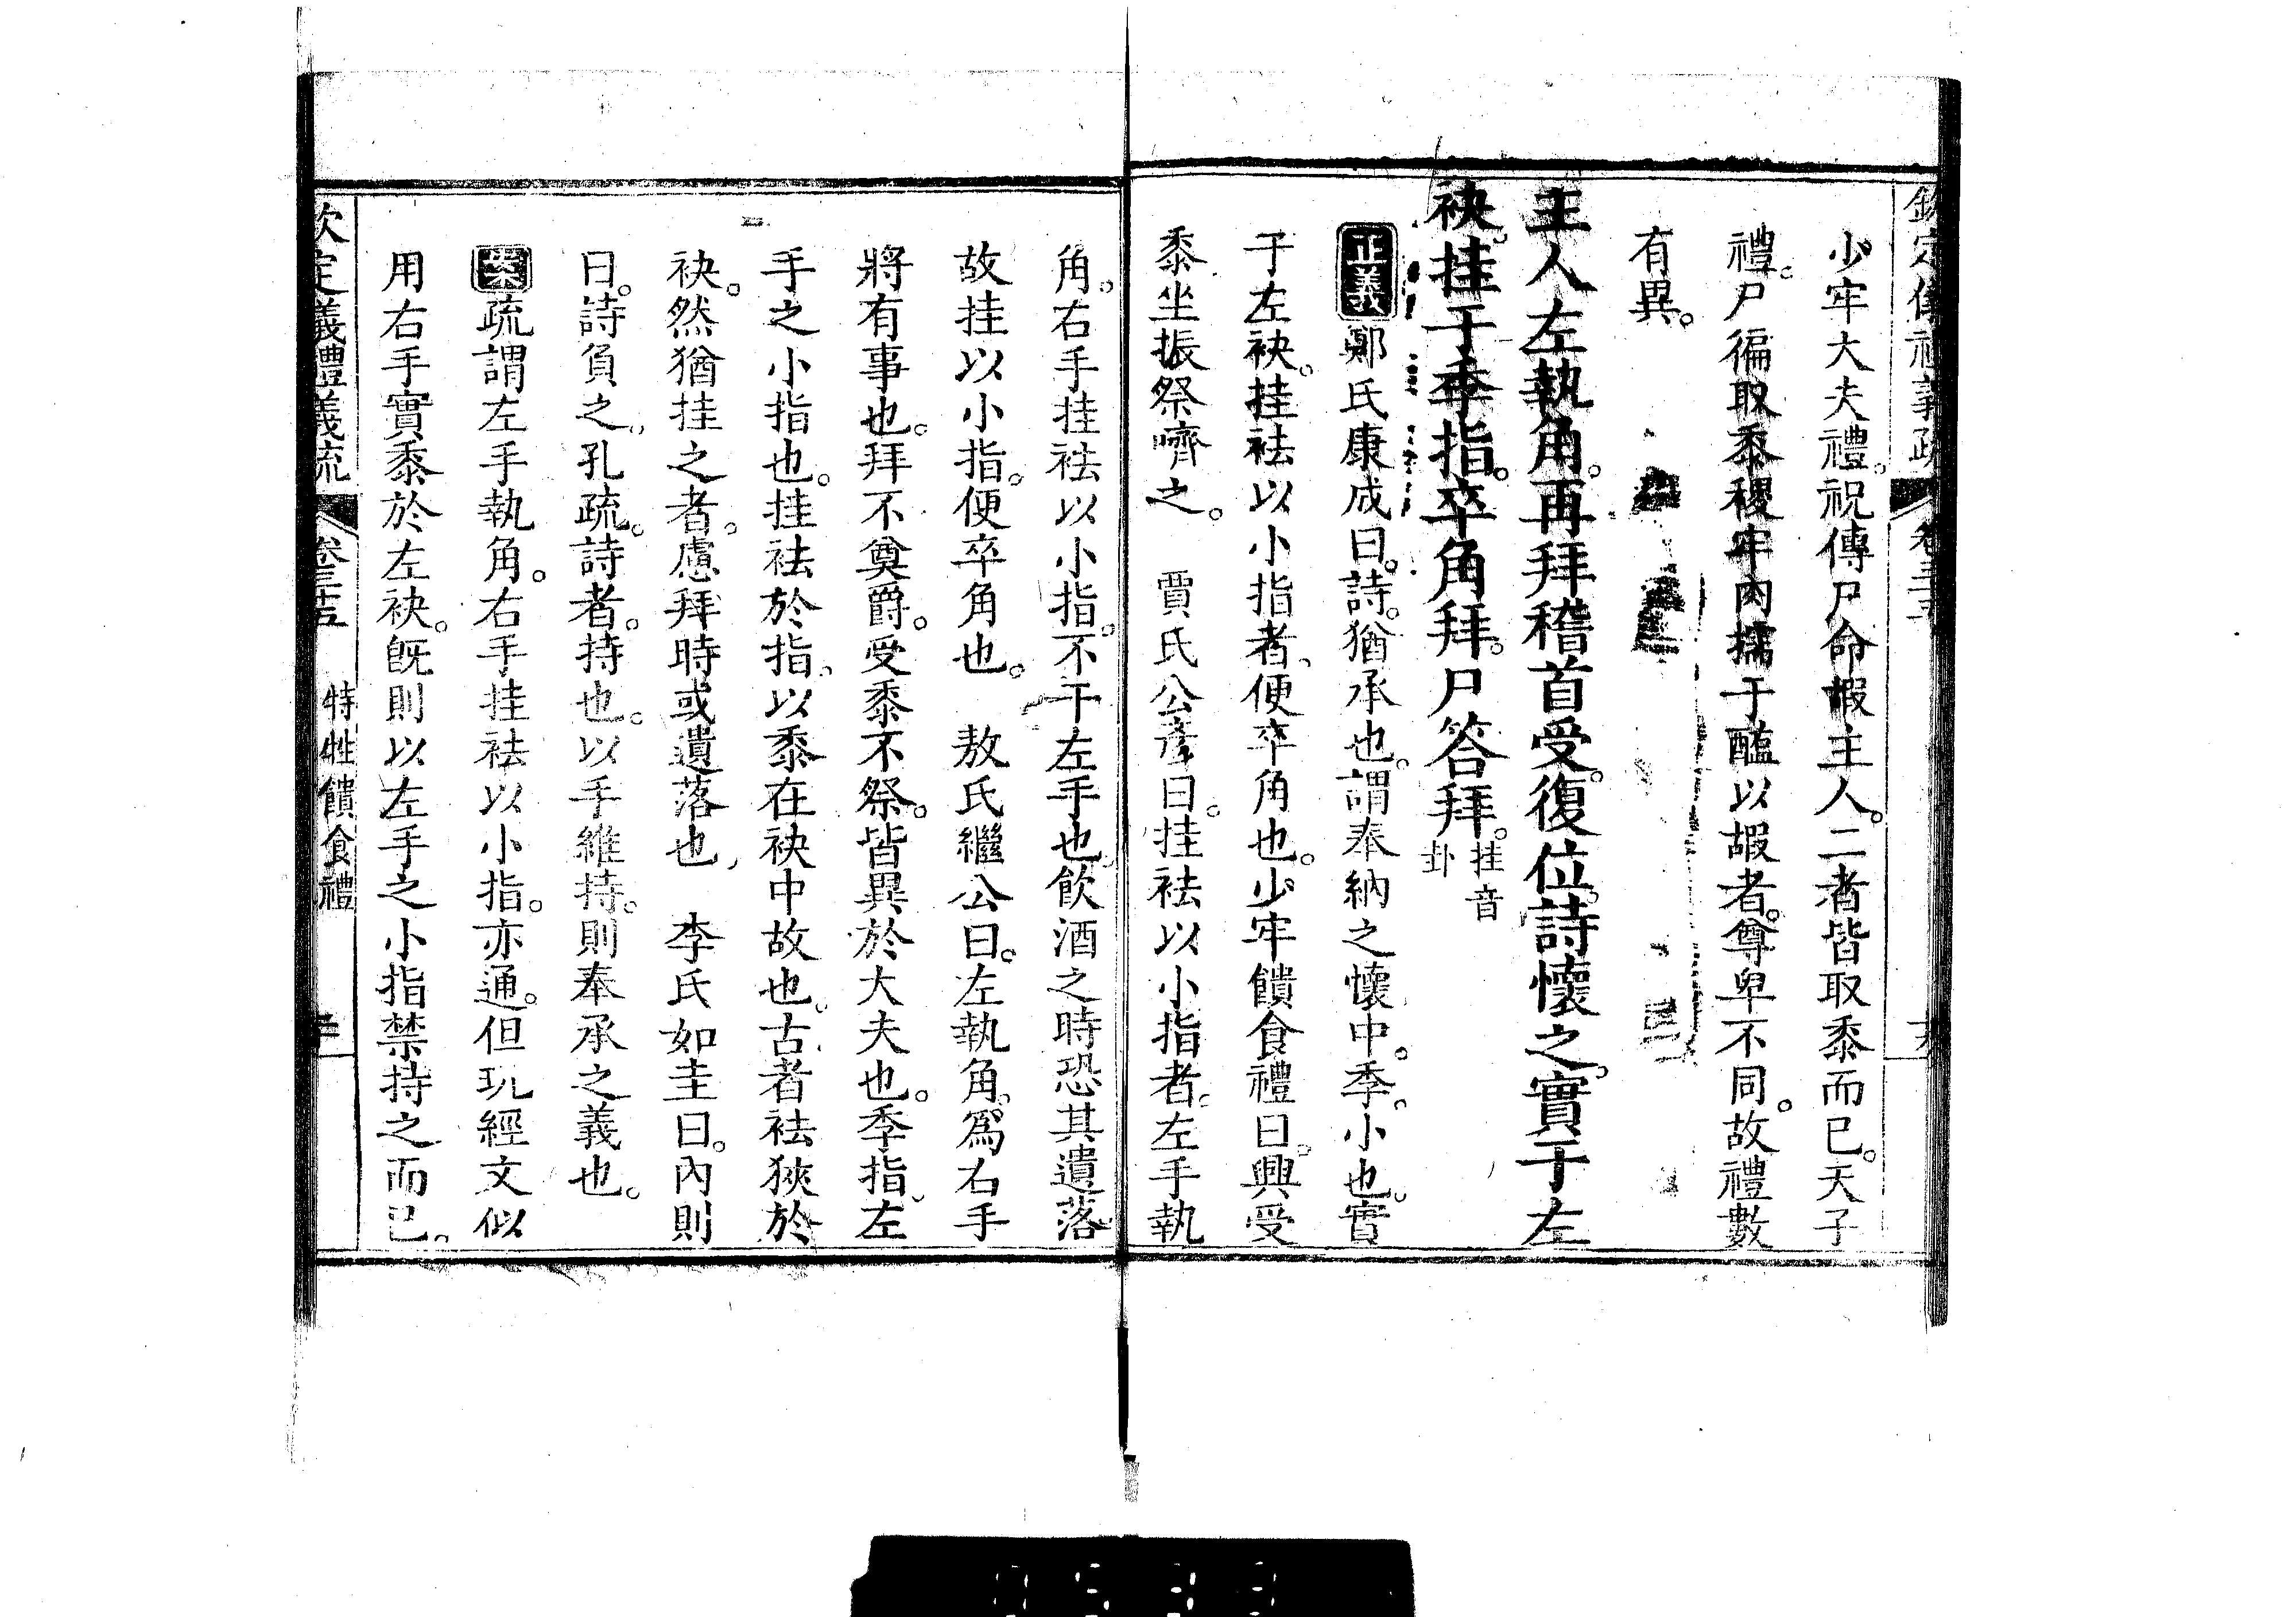 少牢大夫禮。祝傳尸命嘏主人。二者皆取黍而已。天子
禮。尸徧取黍稷牢肉擩于醢以嘏者。尊卑不同。故禮數
有異。
主人左執角。再拜稽首受。復位。詩懷之。實于左
袂。挂于季指。卒角拜。尸答拜。挂音
卦
正義鄭氏康成曰。詩。猶承也。謂奉納之懷中。季。小也。實
于左袂。挂袪以小指者。便卒角也。少牢饋食禮曰。興受
黍坐振祭嚌之。 賈氏公彥曰。挂袪以小指者。左手執
角。右手挂袪以小指。不干左手也。飲酒之時恐其遺落
故挂以小指。便卒角也。 敖氏繼公曰。左執角。爲右手
將有事也。拜不奠爵。受黍不祭。皆異於大夫也。季指。左
手之小指也。挂袪於指。以黍在袂中故也。古者袪狹於
袂。然猶挂之者。慮拜時或遺落也。 李氏如圭曰。內則
曰。詩負之。孔疏。詩者。持也。以手維持。則奉承之義也。
案疏謂左手執角。右手挂袪以小指。亦通。但玩經文似
用右手實黍於左袂。旣則以左手之小指禁持之而已。
欽定義禮義疏 卷三十五 特牲饋食禮